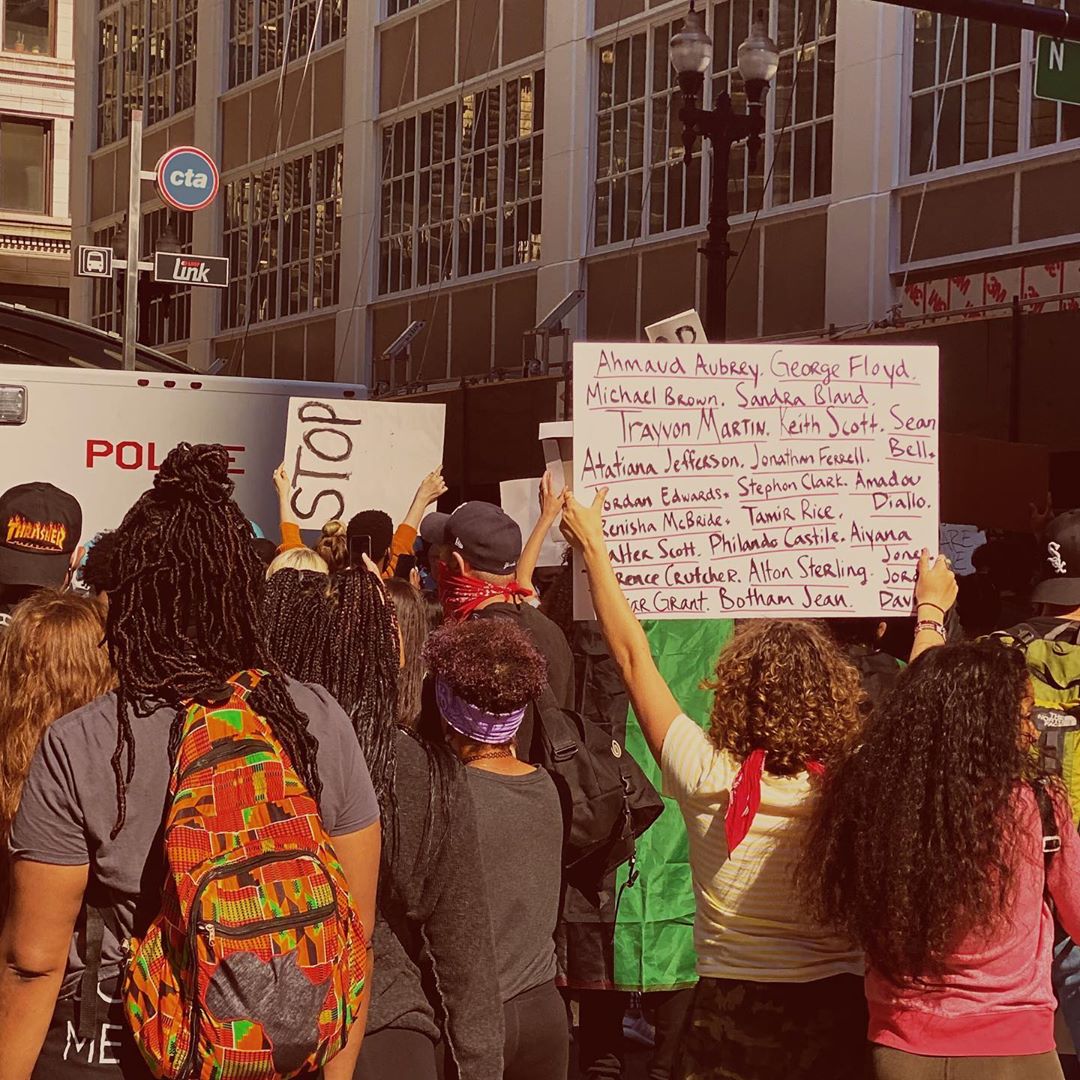 N
cta
Link
POLICE
STOP
Ahmaud Aubrey. George Floyd.
Michael Brown. Sandra Bland.
Trayvon Martin. Keith Scott. Sean
Bell.
Atatiana Jefferson. Jonathan Ferrell.
Stephon Clark. Amadou
Diallo.
Edwards.
McBride. Tamir Rice.
Scott. Philando Castile. Aiyana
Jone
Crutcher. Alton Sterling.
Grant. Botham Jean.
THRASHER
Sox
THE
NORTH
FACE
ME